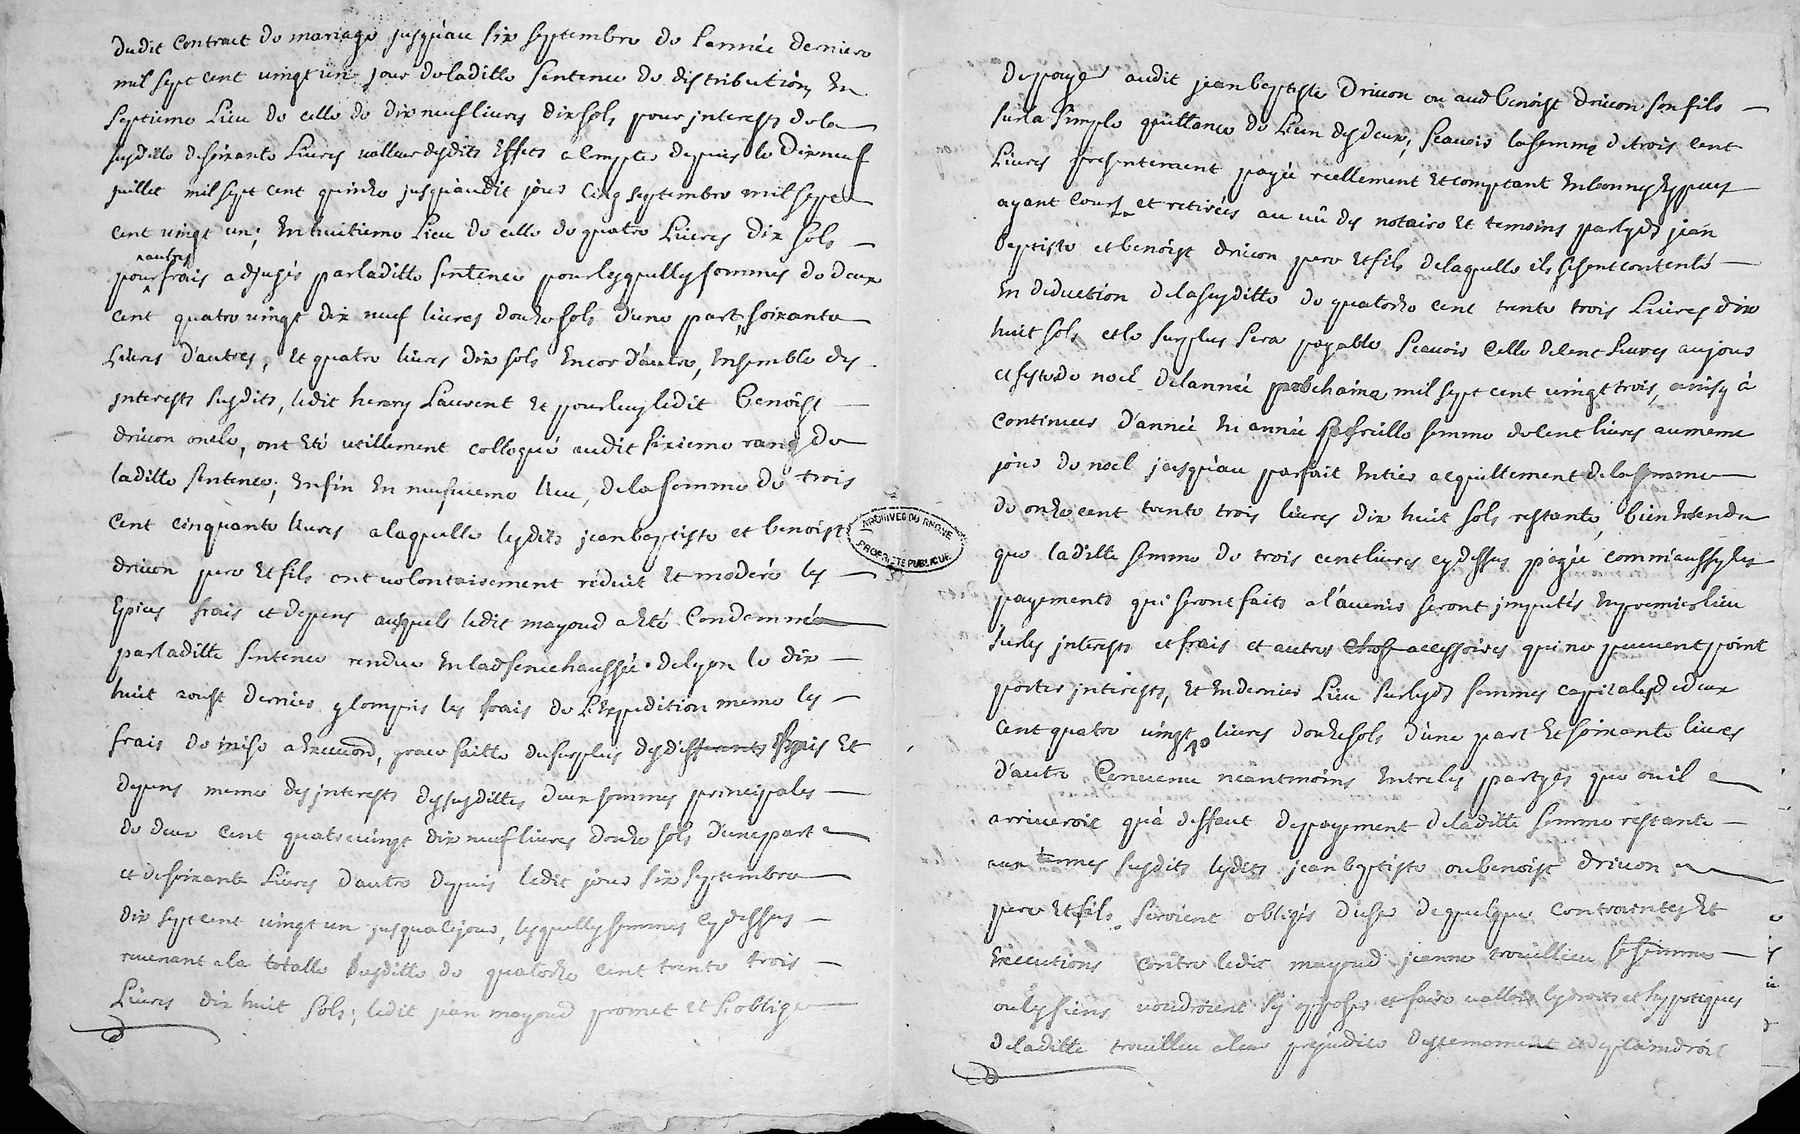 dudit contract de mariage jusqu'au six septembre de l'année derniere
mil sept cent vingt un jour de laditte sentence de distribution, En
septieme Lieu de celle de dix neuf livres dix sols pour interests de la
susditte de soixante Livres valleur desdits Effets a compter depuis le Dix neuf
juillet mil sept cent quinze jusqu'audit jour cinq septembre mil sept
cent vingt un; En huitieme Lieu de celle de quatre Livres dix sols
autres
pour frais adjugés par laditte sentence pour lesquelles sommes de deux
cent quatre vingt dix neuf livres douze sols d'une part, soixante
Livres d'autres, Et quatre livres dix sols Encor d'autre, Ensemble des
interests susdits, ledit henry Laurent Et pour luy ledit Benoist
drivon oncle, ont Eté utillement colloqué audit sixieme rang de
laditte sentence; Enfin En neufvieme lieu, de la somme de trois
cent cinquante livres a laquelle lesdits jean baptiste et benoist
drivon pere Et fils ont volontairement réduit Et modéré les
Epices frais et depens ausquels ledit mayoud a Eté Condemné
par laditte sentence rendue En la senechaussée de lyon le dix
huit aoust dernier y compris les frais de L'Expedition meme les
frais de mise a Execution, grace faitte du surplus desdits frais Et
depens meme des interests desusdittes deux sommes principales
de deux cent quatre vingt dix neuf livres douze sols d'une part
et de soixante Livres d'autre depuis ledit jour six septembre
dix sept cent vingt un jusqu'a ce jour, lesquelles sommes cy dessus
revenant a la totalle susditte de quatorze cent trente trois
Livres dix huit sols; ledit jean mayoud promet et s'oblige
ARCHIVES DU RHONE
PROPRIETE PUBLIQUE
de payer audit jean baptiste Drivon ou aud benoist drivon son fils
sur la simple quittance de L'un des deux, scavoir la somme de trois cent
Livres presentement payée reellement Et comptant En bonnes Especes
ayant cours et retirées au vû des notaire Et temoins par lesd jean
baptiste et benoist drivon pere Et fils de laquelle ils se sont contenté
En deduction de la susditte de quatorze cent trente trois Livres dix
huit sols et le surplus sera payable scavoir celle de cent livres au jour
et feste de noel de l'année prochaine mil sept cent vingt trois, ainsy à
continuer d'année En année pareille somme de cent livres au meme
jour de noel jusqu'au parfait Entier acquittement de la somme
de onze cent trente trois livres dix huit sols restante, bien Entendu
que laditte somme de trois cent livres cy dessus payée comm'aussy les
payements qui seront faits a l'avenir seront imputés En premier lieu
sur les interests et frais et autres accessoires qui ne peuvent point
porter interests, Et En dernier Lieu sur lesd sommes capitales de deux
cent quatre vingt 19 livres douze sols d'une part Et soixante livres
d'autre Convenu néantmoins Entre les partyes que ou il
arriveroit qu'à deffaut de payement de laditte somme restante
aux termes susdits lesdits jean baptiste ou benoist drivon
pere Et fils seroient obligés d'user de quelques contraintes Et
Executions contre ledit mayoud jeanne trouillieu sa femme
ou les siens voudroient s'y opposer et faire valloir les droits et hypoteques
de laditte trouillieu a leur prejudice